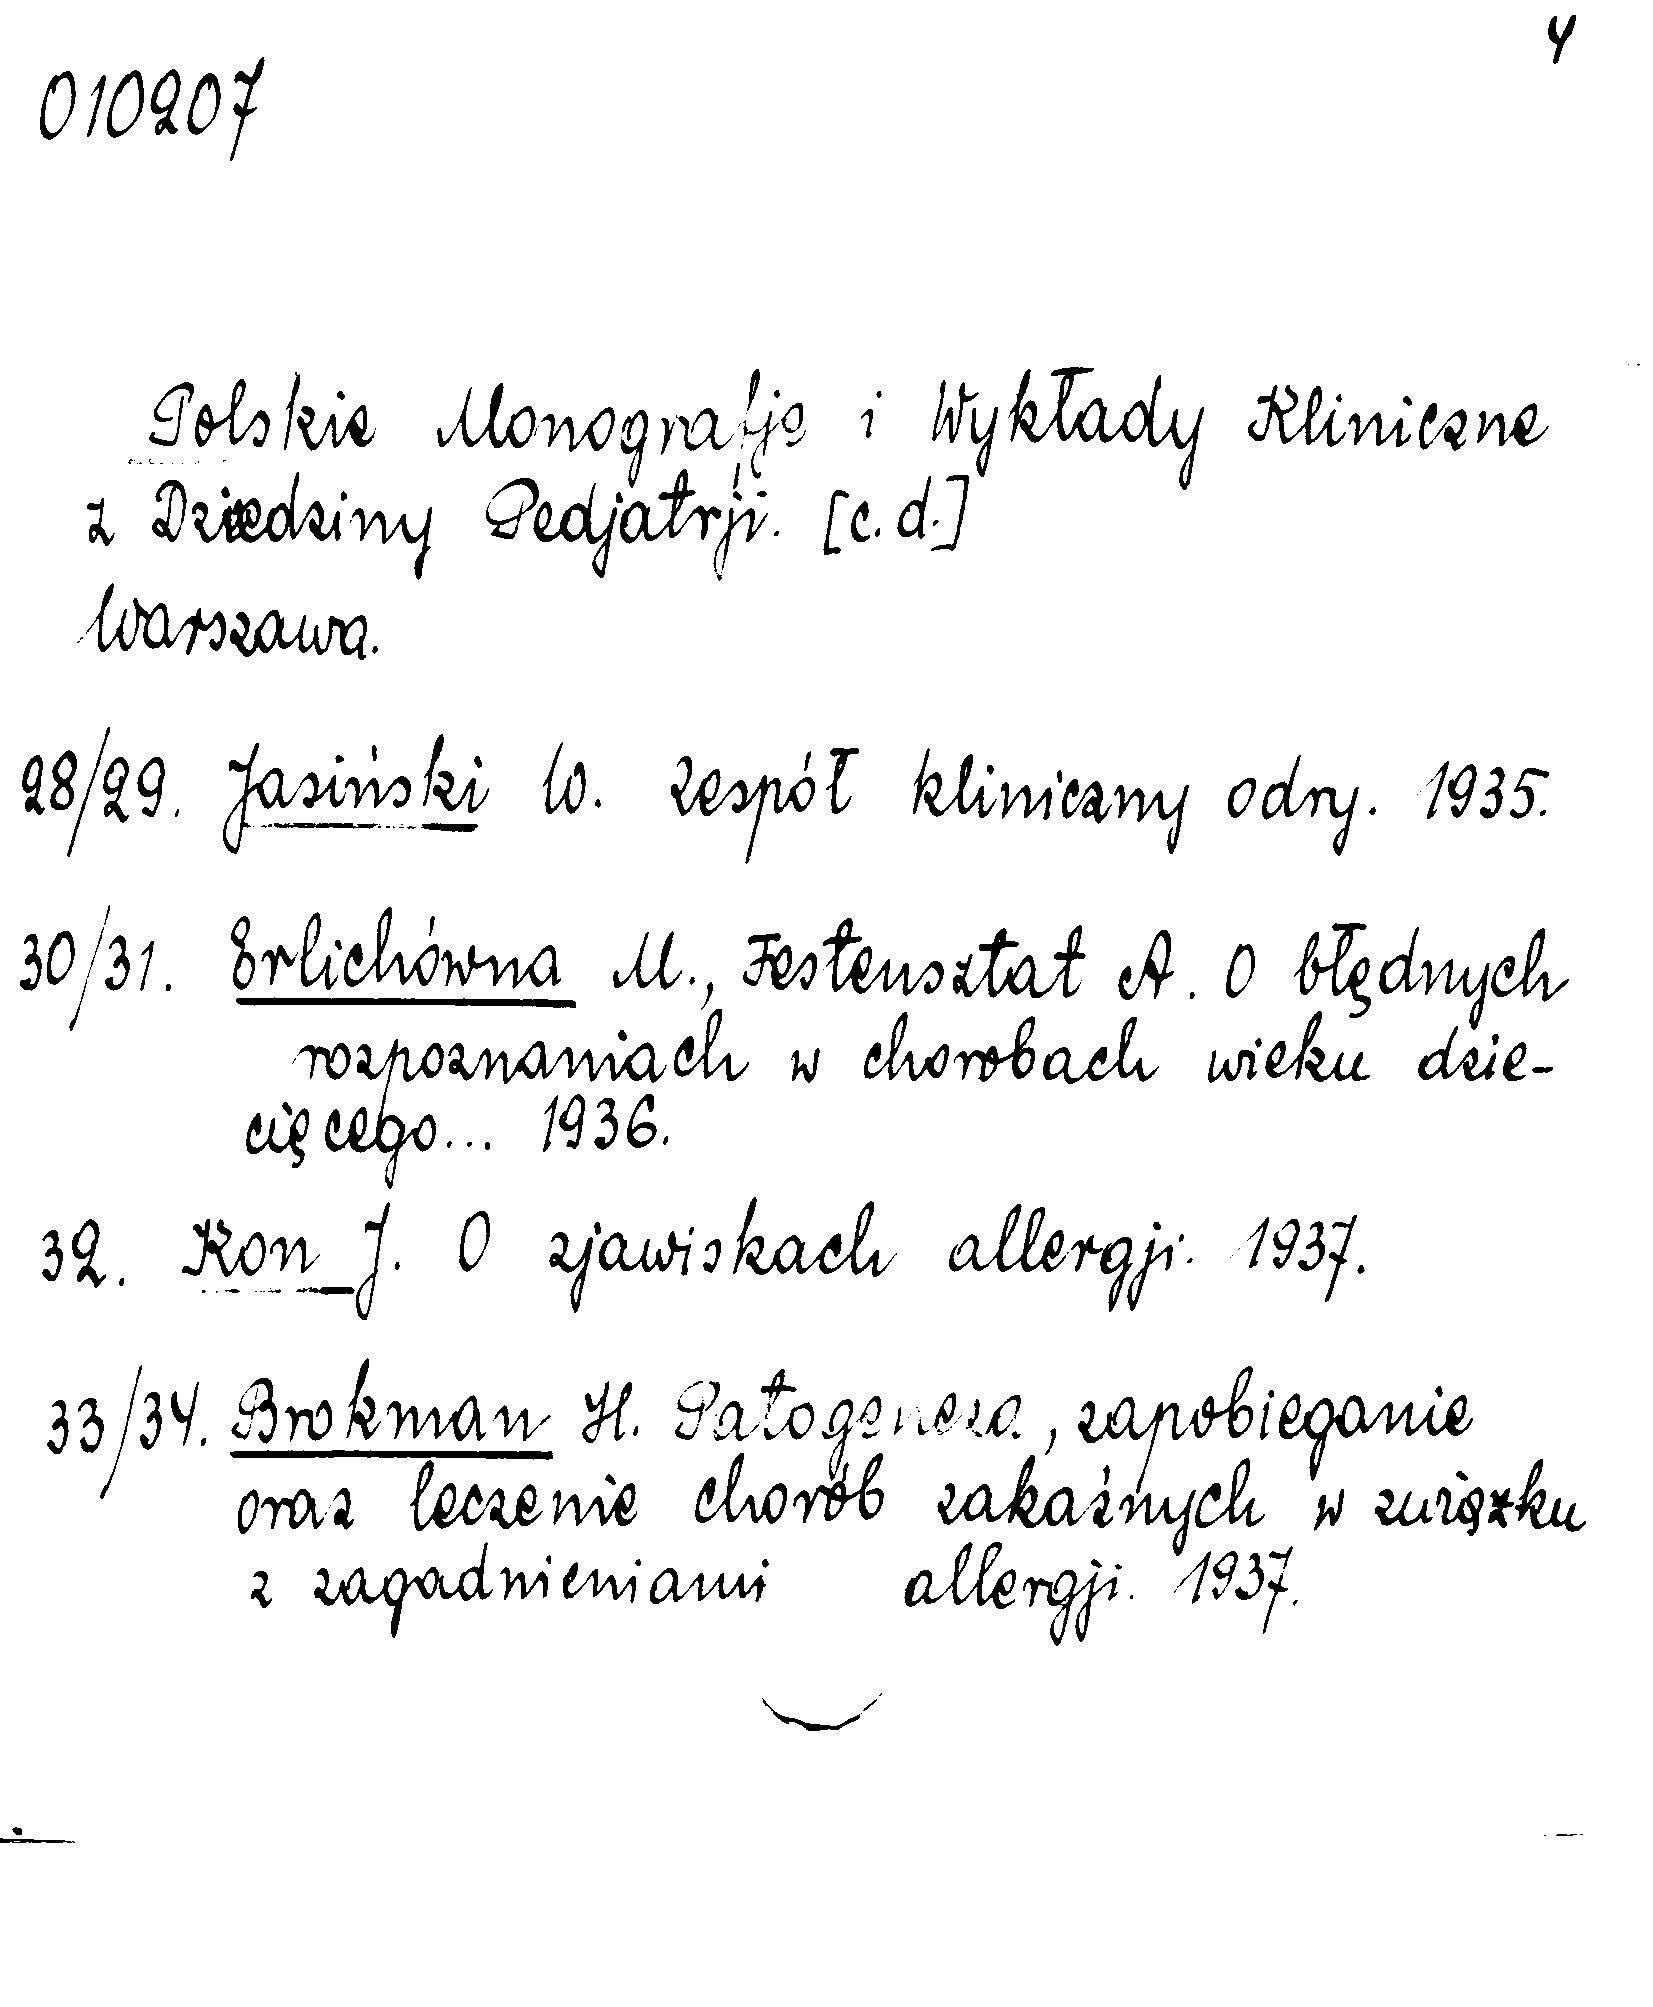 4
010207
Polskie Monografje i Wykłady Kliniczne
z Dziedziny Pedjatrji. [c.d.]
Warszawa.
28/29. Jasiński W. Zespół kliniczny odry. 1935.
30/31. Erlichówna M., Festensztat A. O błędnych
rozpoznaniach w chorobach wieku dzie-
cięcego... 1936.
32. Kon J. O zjawiskach allergji. 1937.
33/34. Brokman H. Patogeneza, zapobieganie
oraz leczenie chorób zakaźnych w związku
z zagadnieniami allergji. 1937.